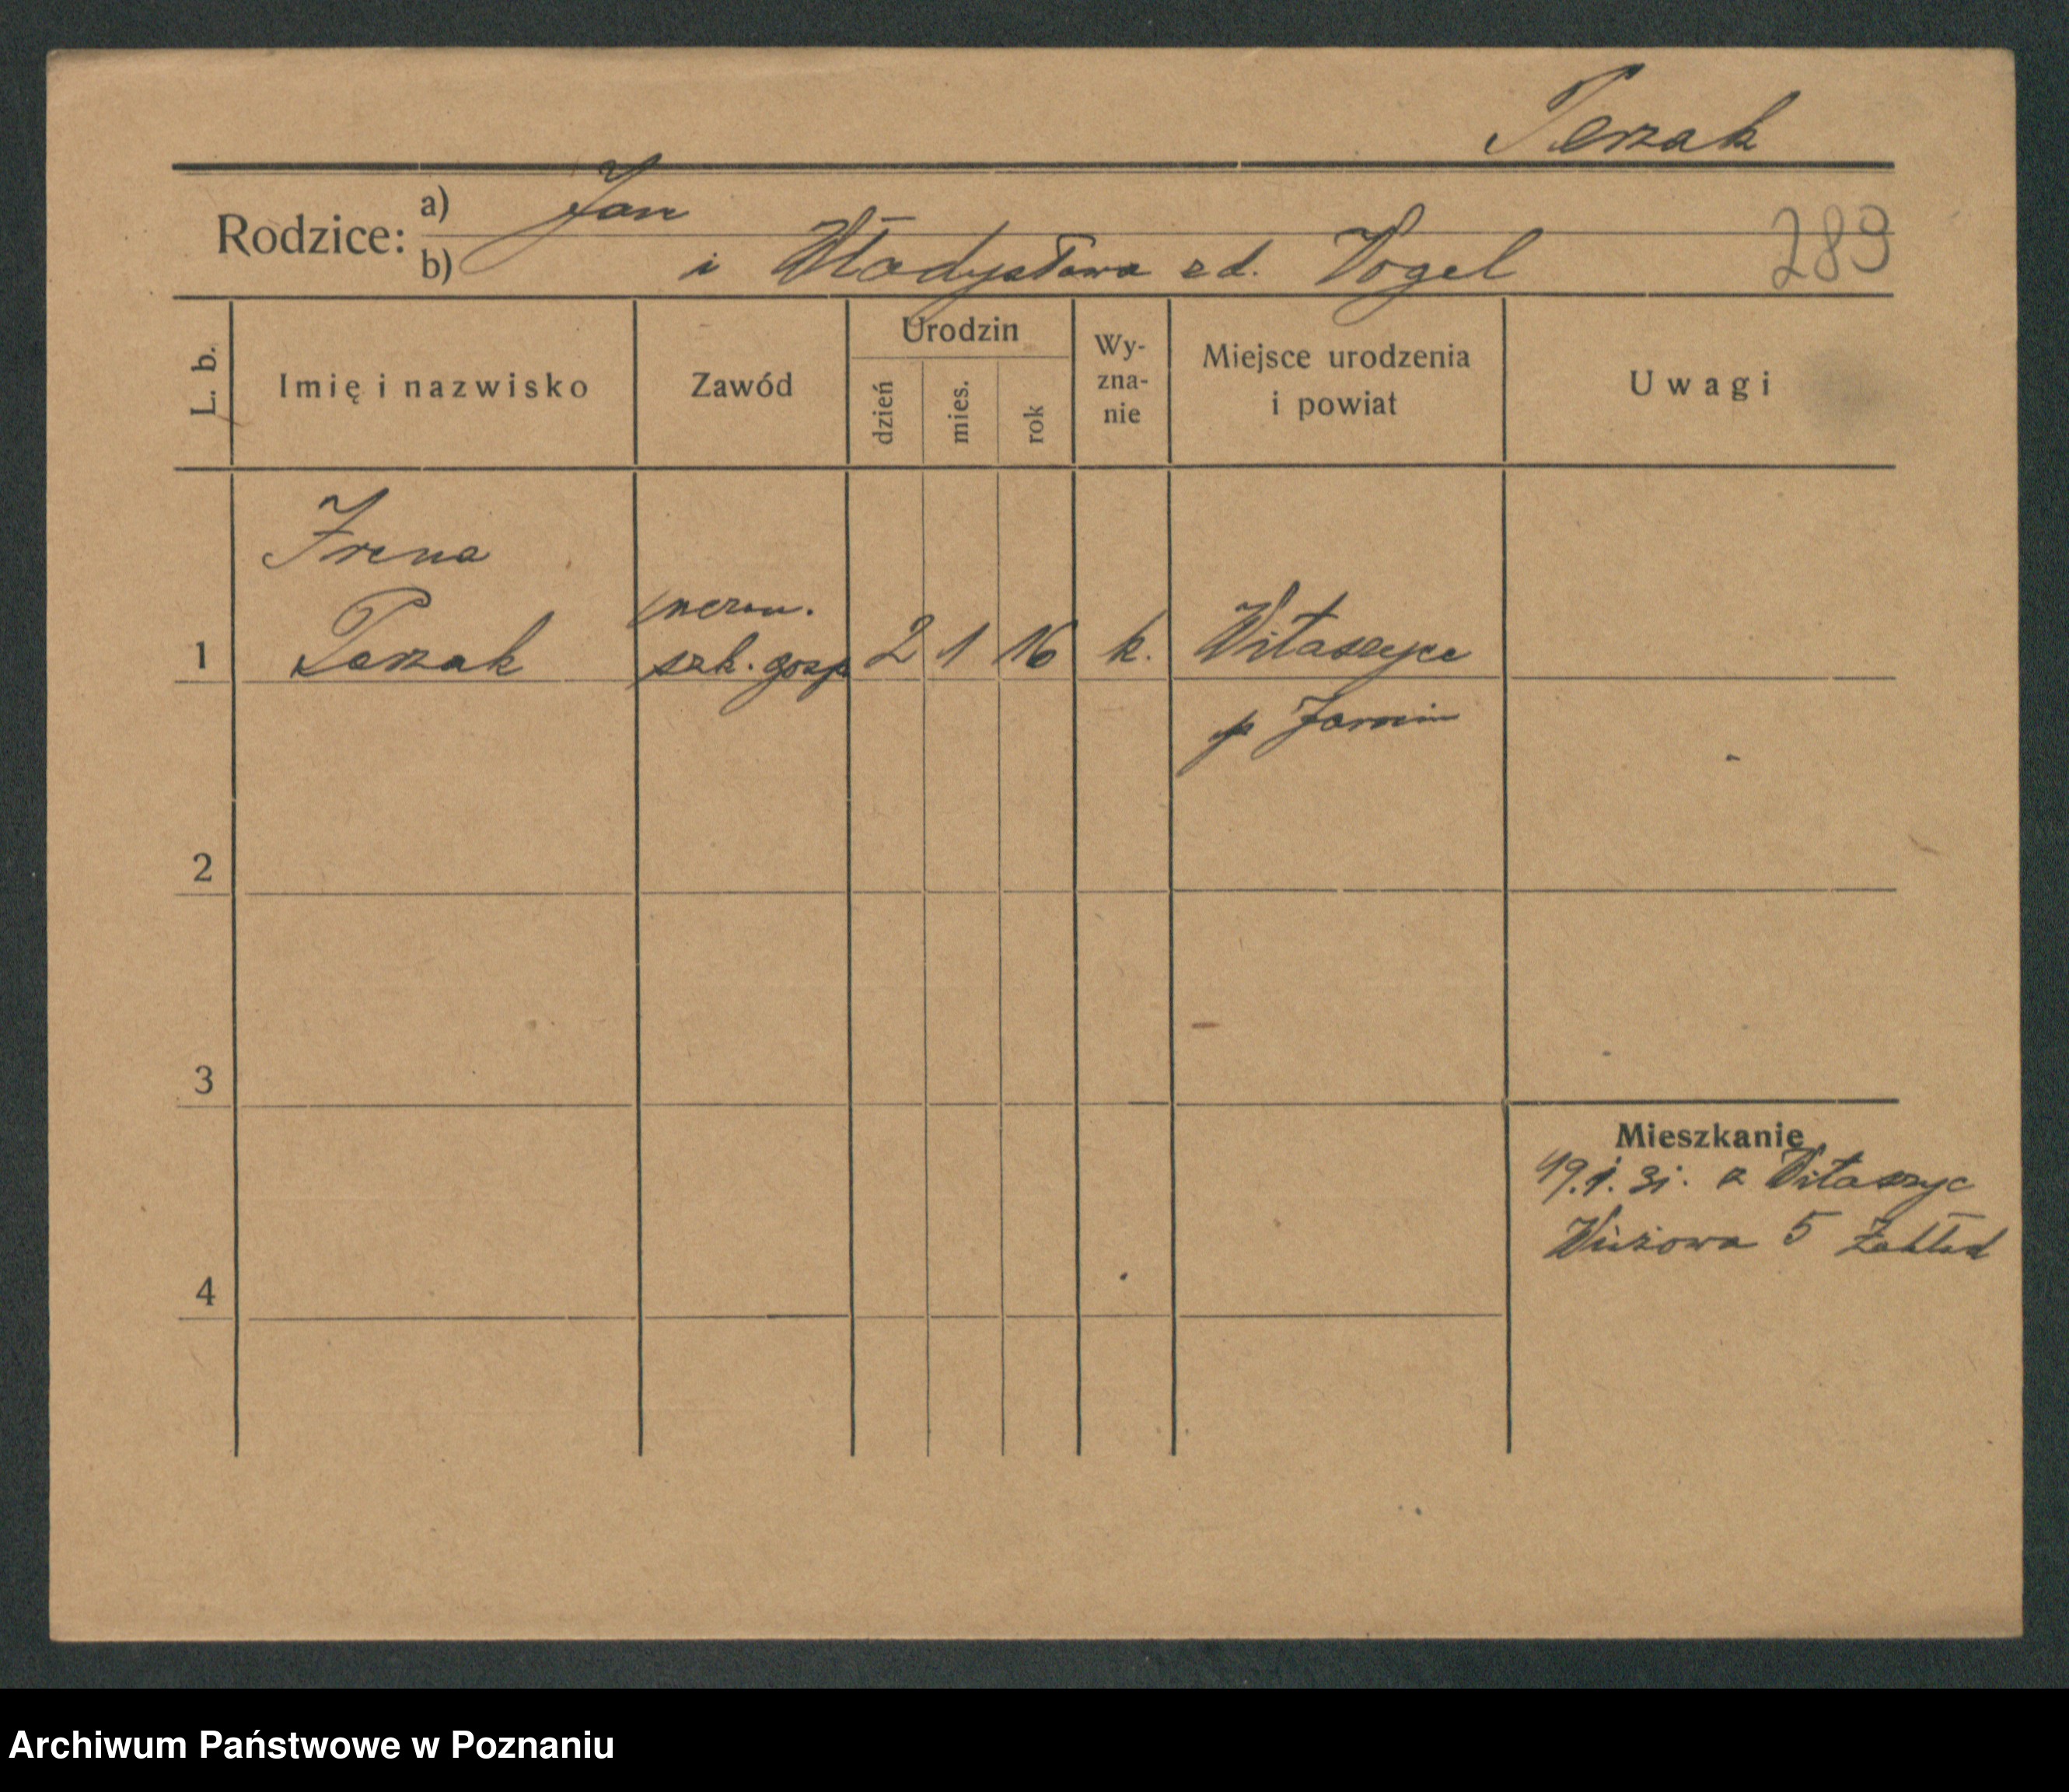 Perzak
Rodzice: a) Jan
b) i Władysława zd. Vogel 289
L. b. Imię i nazwisko Zawód Urodzin dzień mies. rok Wy-zna-nie Miejsce urodzenia i powiat Uwagi
Irena
1 Perzak szk. gosp 2 1 16 k. Witaszyce
p Jarocin
2
3
Mieszkanie
19.1.31. z Witaszyc
5 Zakład
4
Archiwum Państwowe w Poznaniu